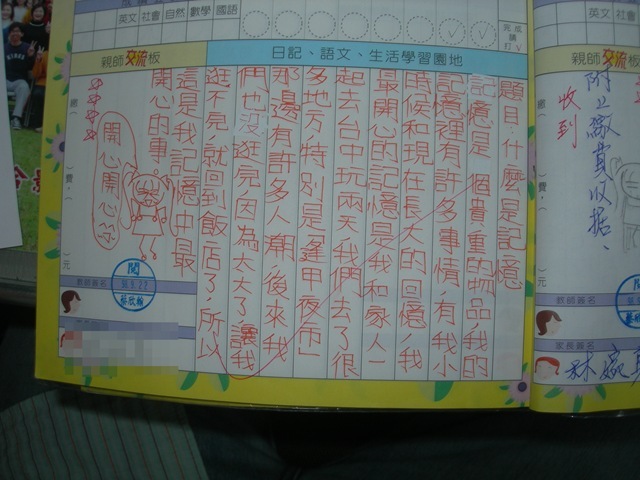 國語
數學
自然
社會
英文
完成
請打√
日記、語文、生活學習園地
題目:什麼是記憶
記憶是一個貴重的物品,我的
記憶裡有許多事情,有我小
時候和現在長大的回憶,我
最開心的記憶是我和家人一
起去台中玩兩天,我們去了很
多地方,特別是「逢甲夜市」
那邊有許多人潮,後來我
們也沒逛完因為太大了,讓我
逛不完,就回到飯店了,所以
這是我記憶中最
開心的事
親師交流板
開心開心
元
教師簽名
閱
社會
英文
親師交
附上繳費收据、
收到
元
教師簽名
家長簽名
林